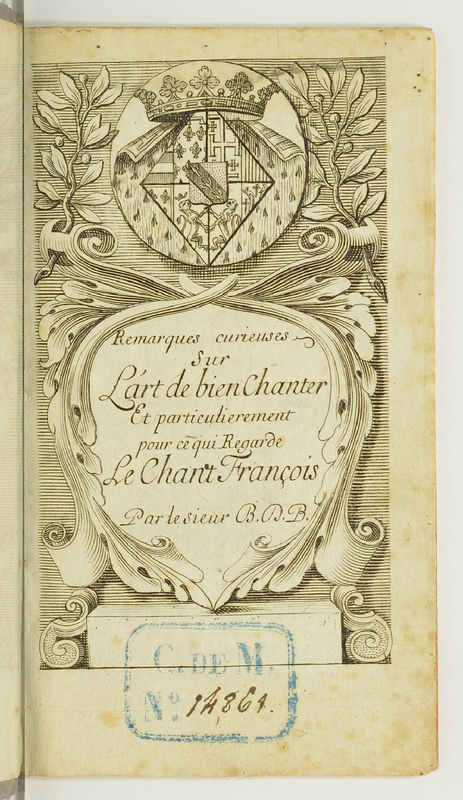 Remarques curieuses
Sur
L'art de bien Chanter
Et particulierement
pour ce qui Regarde
Le Chant François
Par le sieur B.D.B.
C. DE M.
No. 14,861.